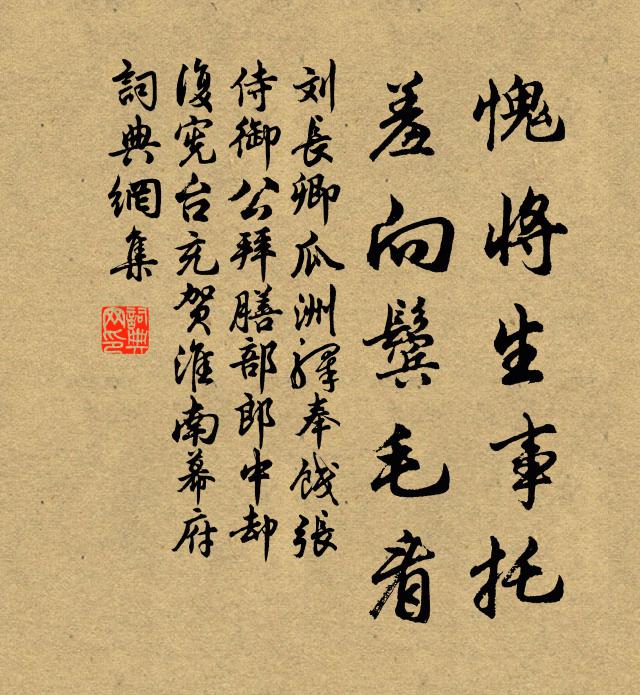 愧将生事托
羞向鬓毛看
刘長卿瓜洲驿奉饯張
侍御公拜膳部郎中却
復宪台充贺淮南幕府
詞典網集
詞典
网印